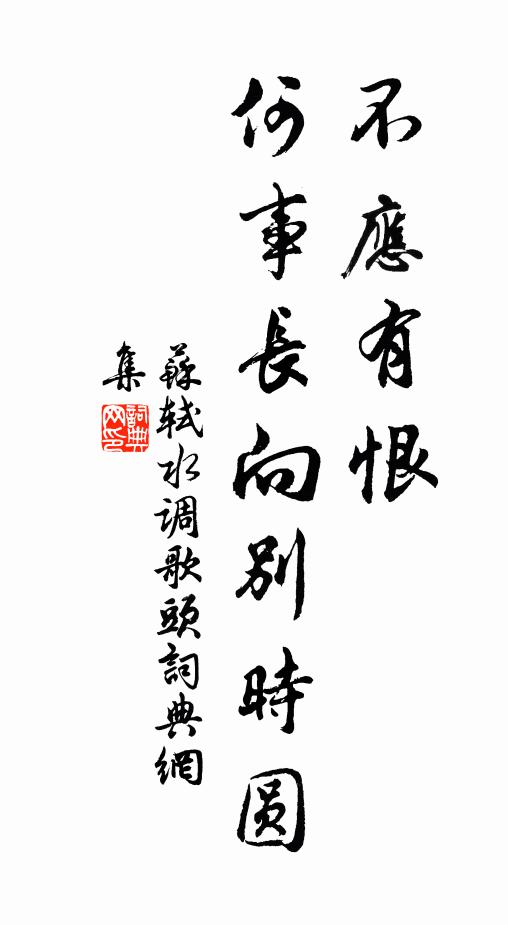 不應有恨
何事長向別時圆
蘇軾水调歌頭詞典網
集
詞典
网印